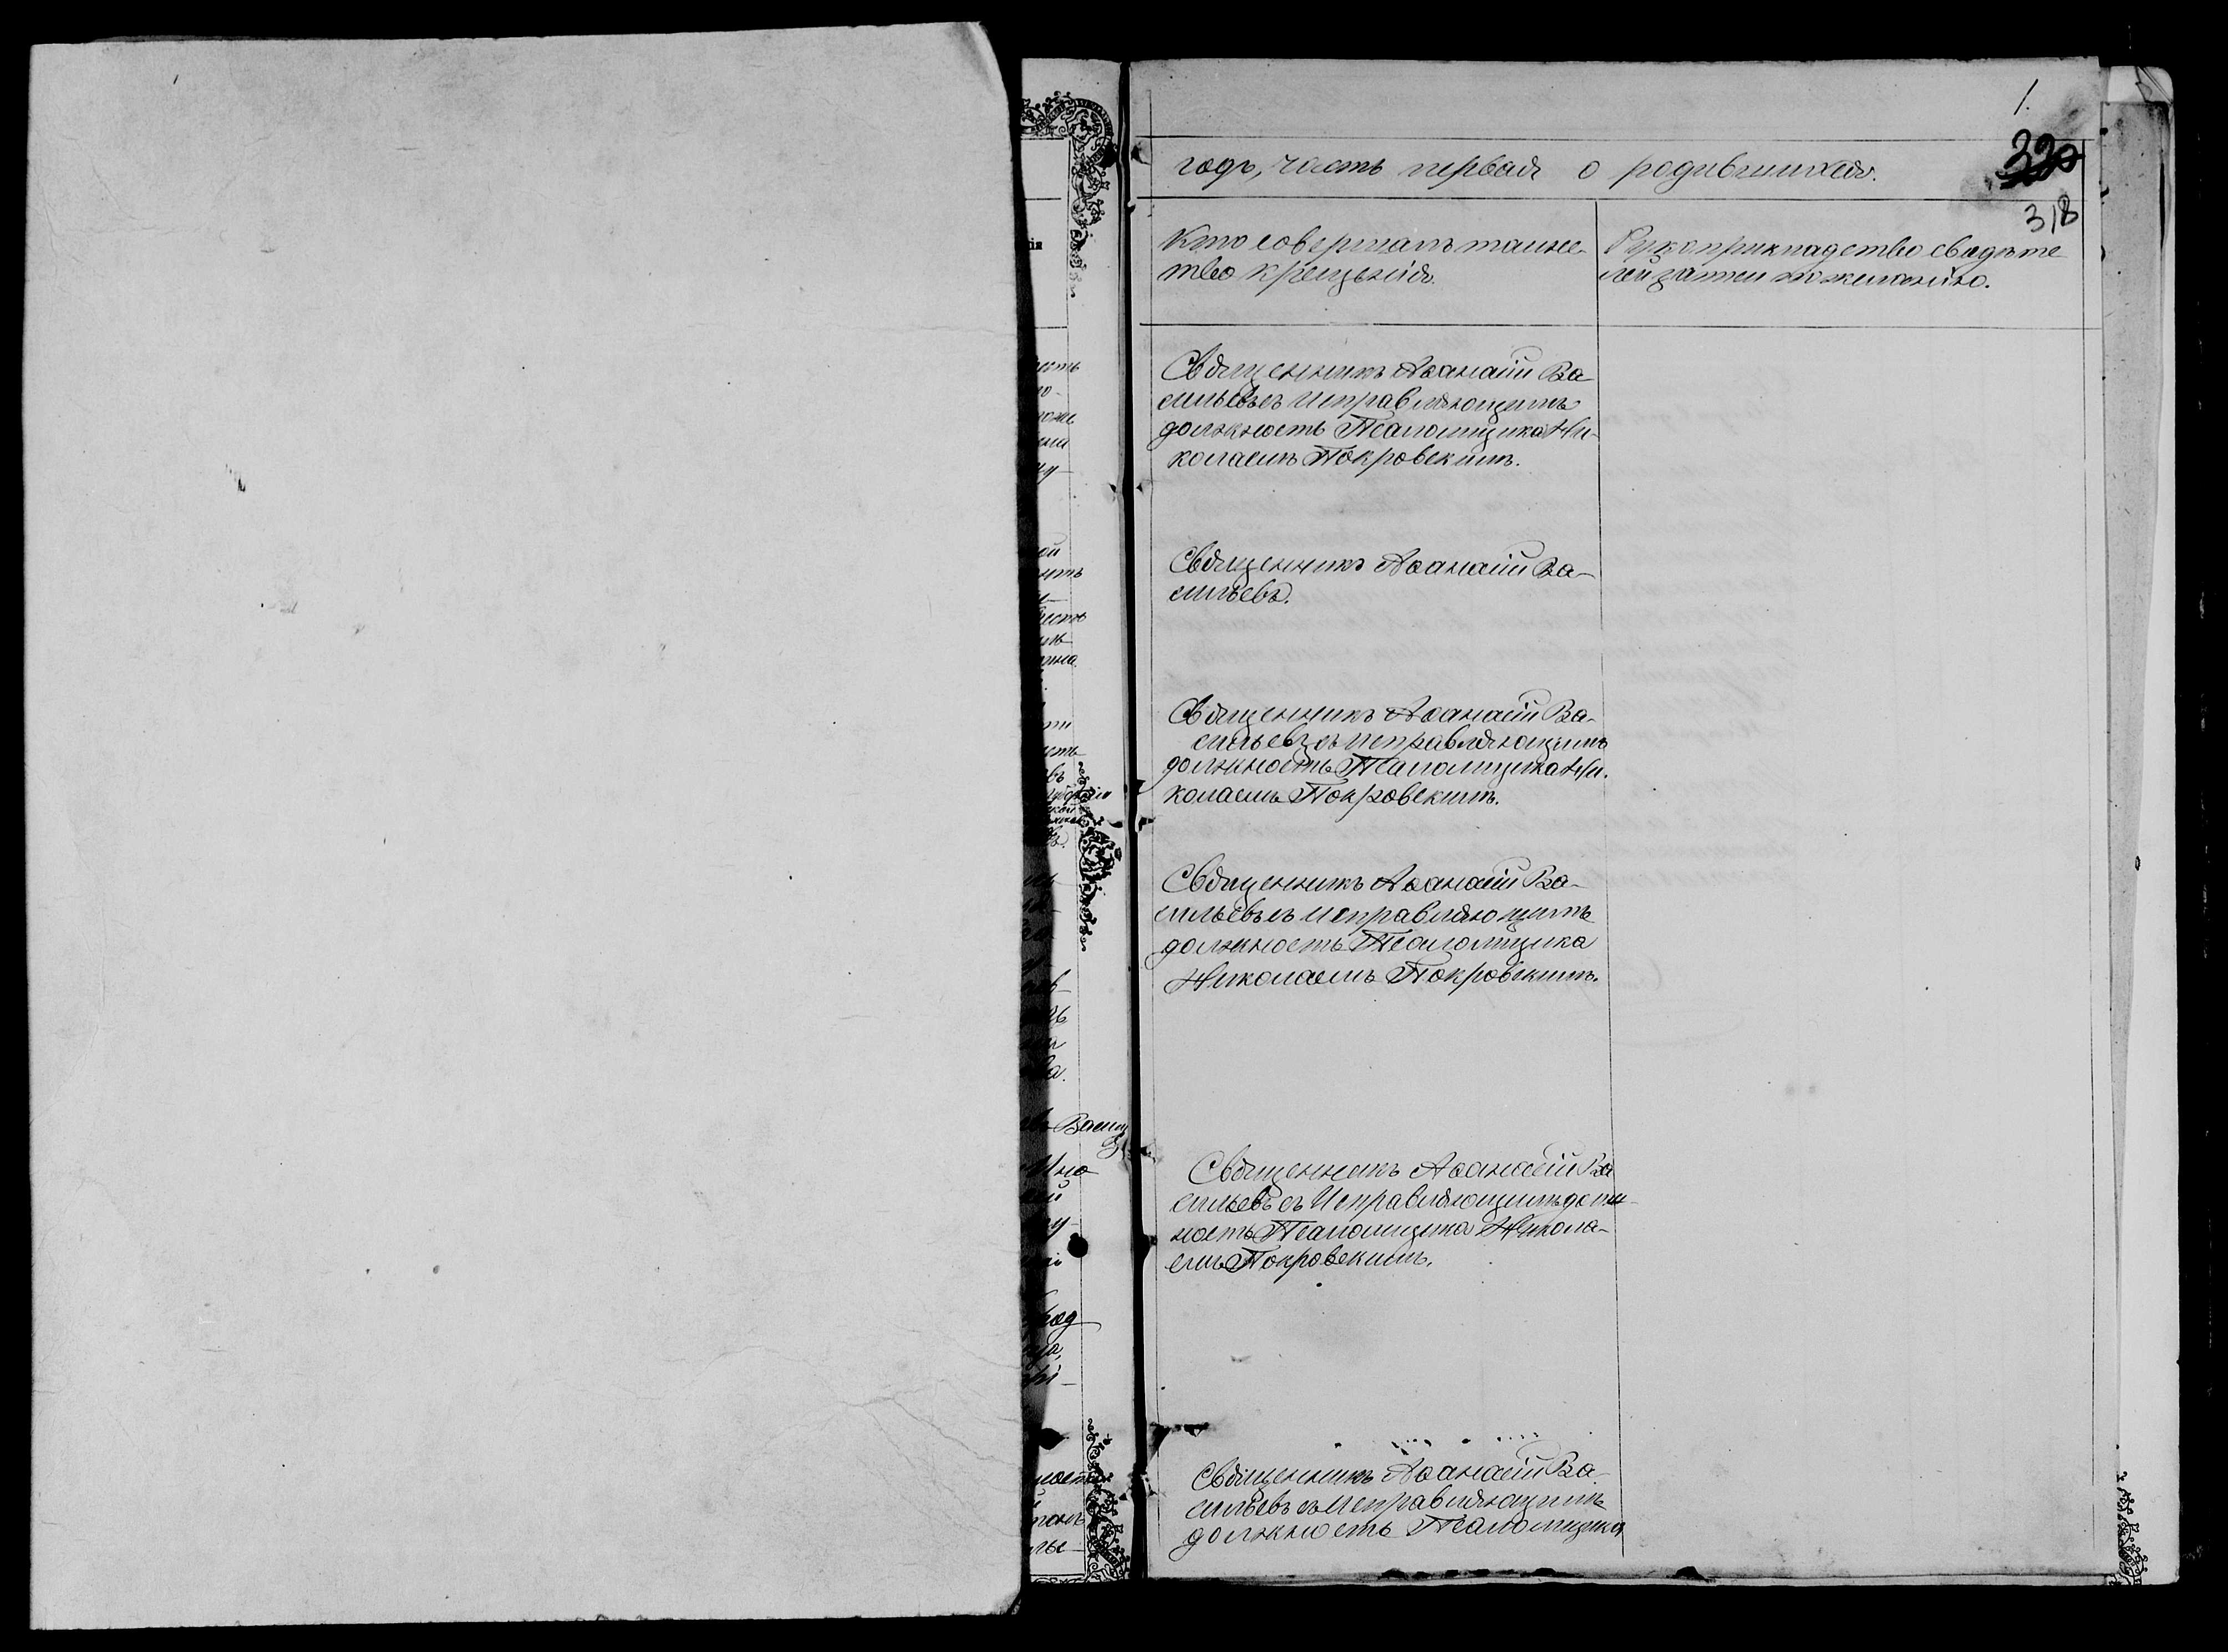 1.
330
318
годъ, часть первая о родившихся.
Кто совершалъ таинс-
тво крещенія.
Рукоприкладство свидѣте
лей записи по желанію.
Священникъ Аѳанасій Ва
сильевъ съ Исправляющимъ
должность Псаломщика Ни-
колаемъ Покровскимъ.
Священникъ Аѳанасій Ва-
сильевъ.
Священникъ Аѳанасій Ва-
сильевъ съ Исправляющимъ
должность Псаломщика Ни-
колаемъ Покровскимъ.
Священникъ Аѳанасій Ва-
сильевъ съ Исправляющимъ
должность Псаломщика
Николаемъ Покровскимъ.
Священникъ Аѳанасій Ва
сильевъ съ Исправляющимъ долж-
ность Псаломщика Никола-
емъ Покровскимъ.
Священникъ Аѳанасій Ва-
сильевъ съ Исправляющимъ
должность Псаломщика